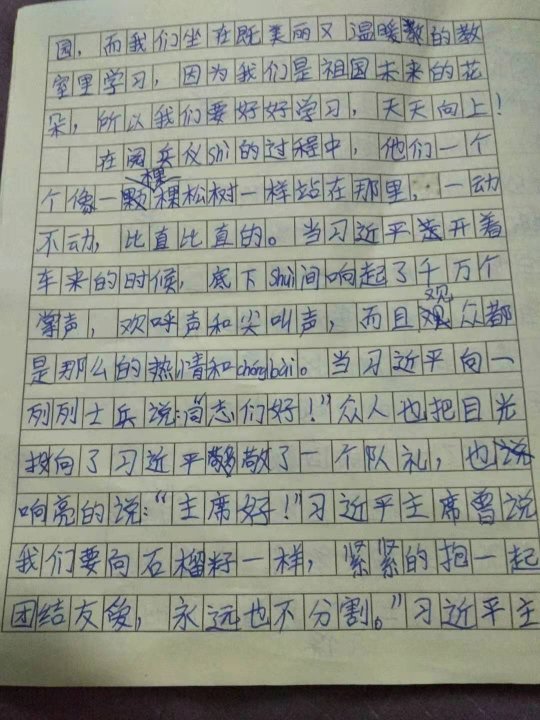 园，而我们坐在既美丽又温暖的教
室里学习，因为我们是祖国未来的花
朵，所以我们要好好学习，天天向上！
在阅兵仪shì的过程中，他们一个
个像一棵棵松树一样站在那里，一动
不动，比直比直的。当习近平开着
车来的时候，底下shùn间响起了千万个
掌声，欢呼声和尖叫声，而且观众都
是那么的热情和chóngbài。当习近平向一
列列士兵说："同志们好！"众人也把目光
投向了习近平敬了一个队礼，也
响亮的说："主席好！"习近平主席曾说
我们要向石榴籽一样，紧紧的抱一起
团结友爱，永远也不分割。"习近平主